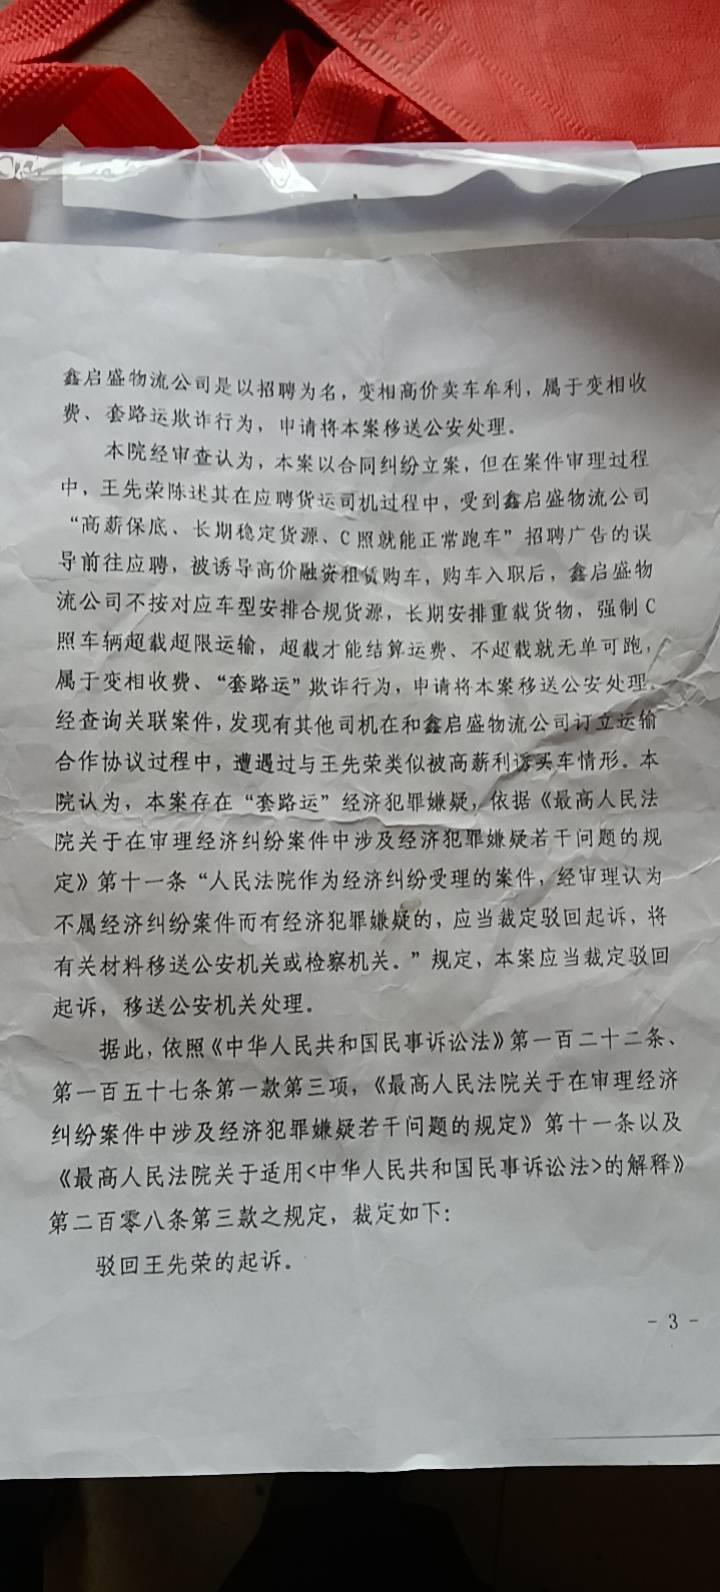 鑫启盛物流公司是以招聘为名，变相高价卖车牟利，属于变相收
费、套路运欺诈行为，申请将本案移送公安处理。
本院经审查认为，本案以合同纠纷立案，但在案件审理过程
中，王先荣陈述其在应聘货运司机过程中，受到鑫启盛物流公司
“高薪保底、长期稳定货源、C照就能正常跑车”招聘广告的误
导前往应聘，被诱导高价融资租赁购车，购车入职后，鑫启盛物
流公司不按对应车型安排合规货源，长期安排重载货物，强制C
照车辆超载超限运输，超载才能结算运费、不超载就无单可跑，
属于变相收费、“套路运”欺诈行为，申请将本案移送公安处理。
经查询关联案件，发现有其他司机在和鑫启盛物流公司订立运输
合作协议过程中，遭遇过与王先荣类似被高薪利诱买车情形。本
院认为，本案存在“套路运”经济犯罪嫌疑，依据《最高人民法
院关于在审理经济纠纷案件中涉及经济犯罪嫌疑若干问题的规
定》第十一条“人民法院作为经济纠纷受理的案件，经审理认为
不属经济纠纷案件而有经济犯罪嫌疑的，应当裁定驳回起诉，将
有关材料移送公安机关或检察机关。”规定，本案应当裁定驳回
起诉，移送公安机关处理。
据此，依照《中华人民共和国民事诉讼法》第一百二十二条、
第一百五十七条第一款第三项，《最高人民法院关于在审理经济
纠纷案件中涉及经济犯罪嫌疑若干问题的规定》第十一条以及
《最高人民法院关于适用<中华人民共和国民事诉讼法>的解释》
第二百零八条第三款之规定，裁定如下：
驳回王先荣的起诉。
- 3 -